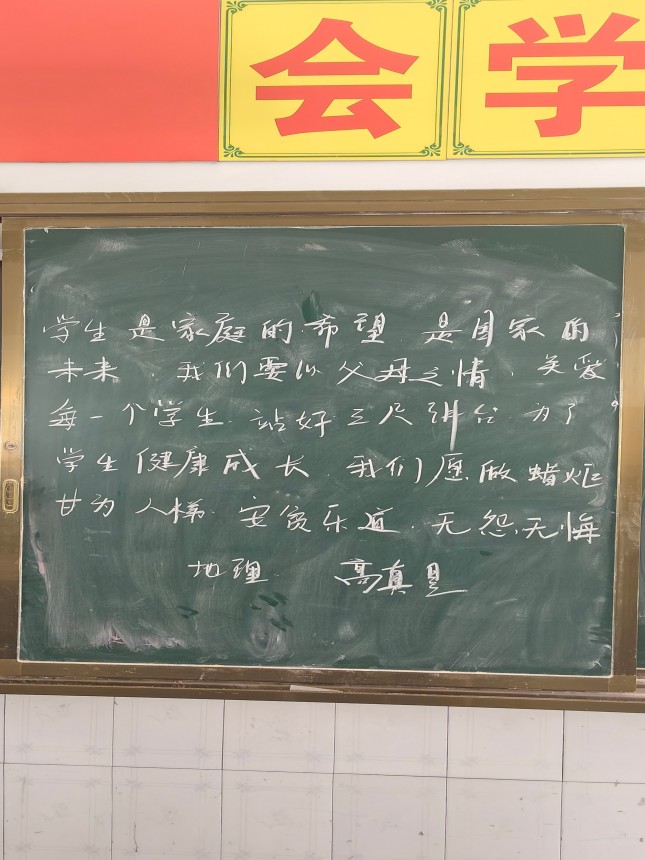 会学
学生是家庭的希望 是国家的
未来，我们要以父母之情，关爱
每一个学生 站好三尺讲台 为了
学生健康成长 我们愿做蜡炬
甘为人梯 安贫乐道 无怨无悔
地理 高真